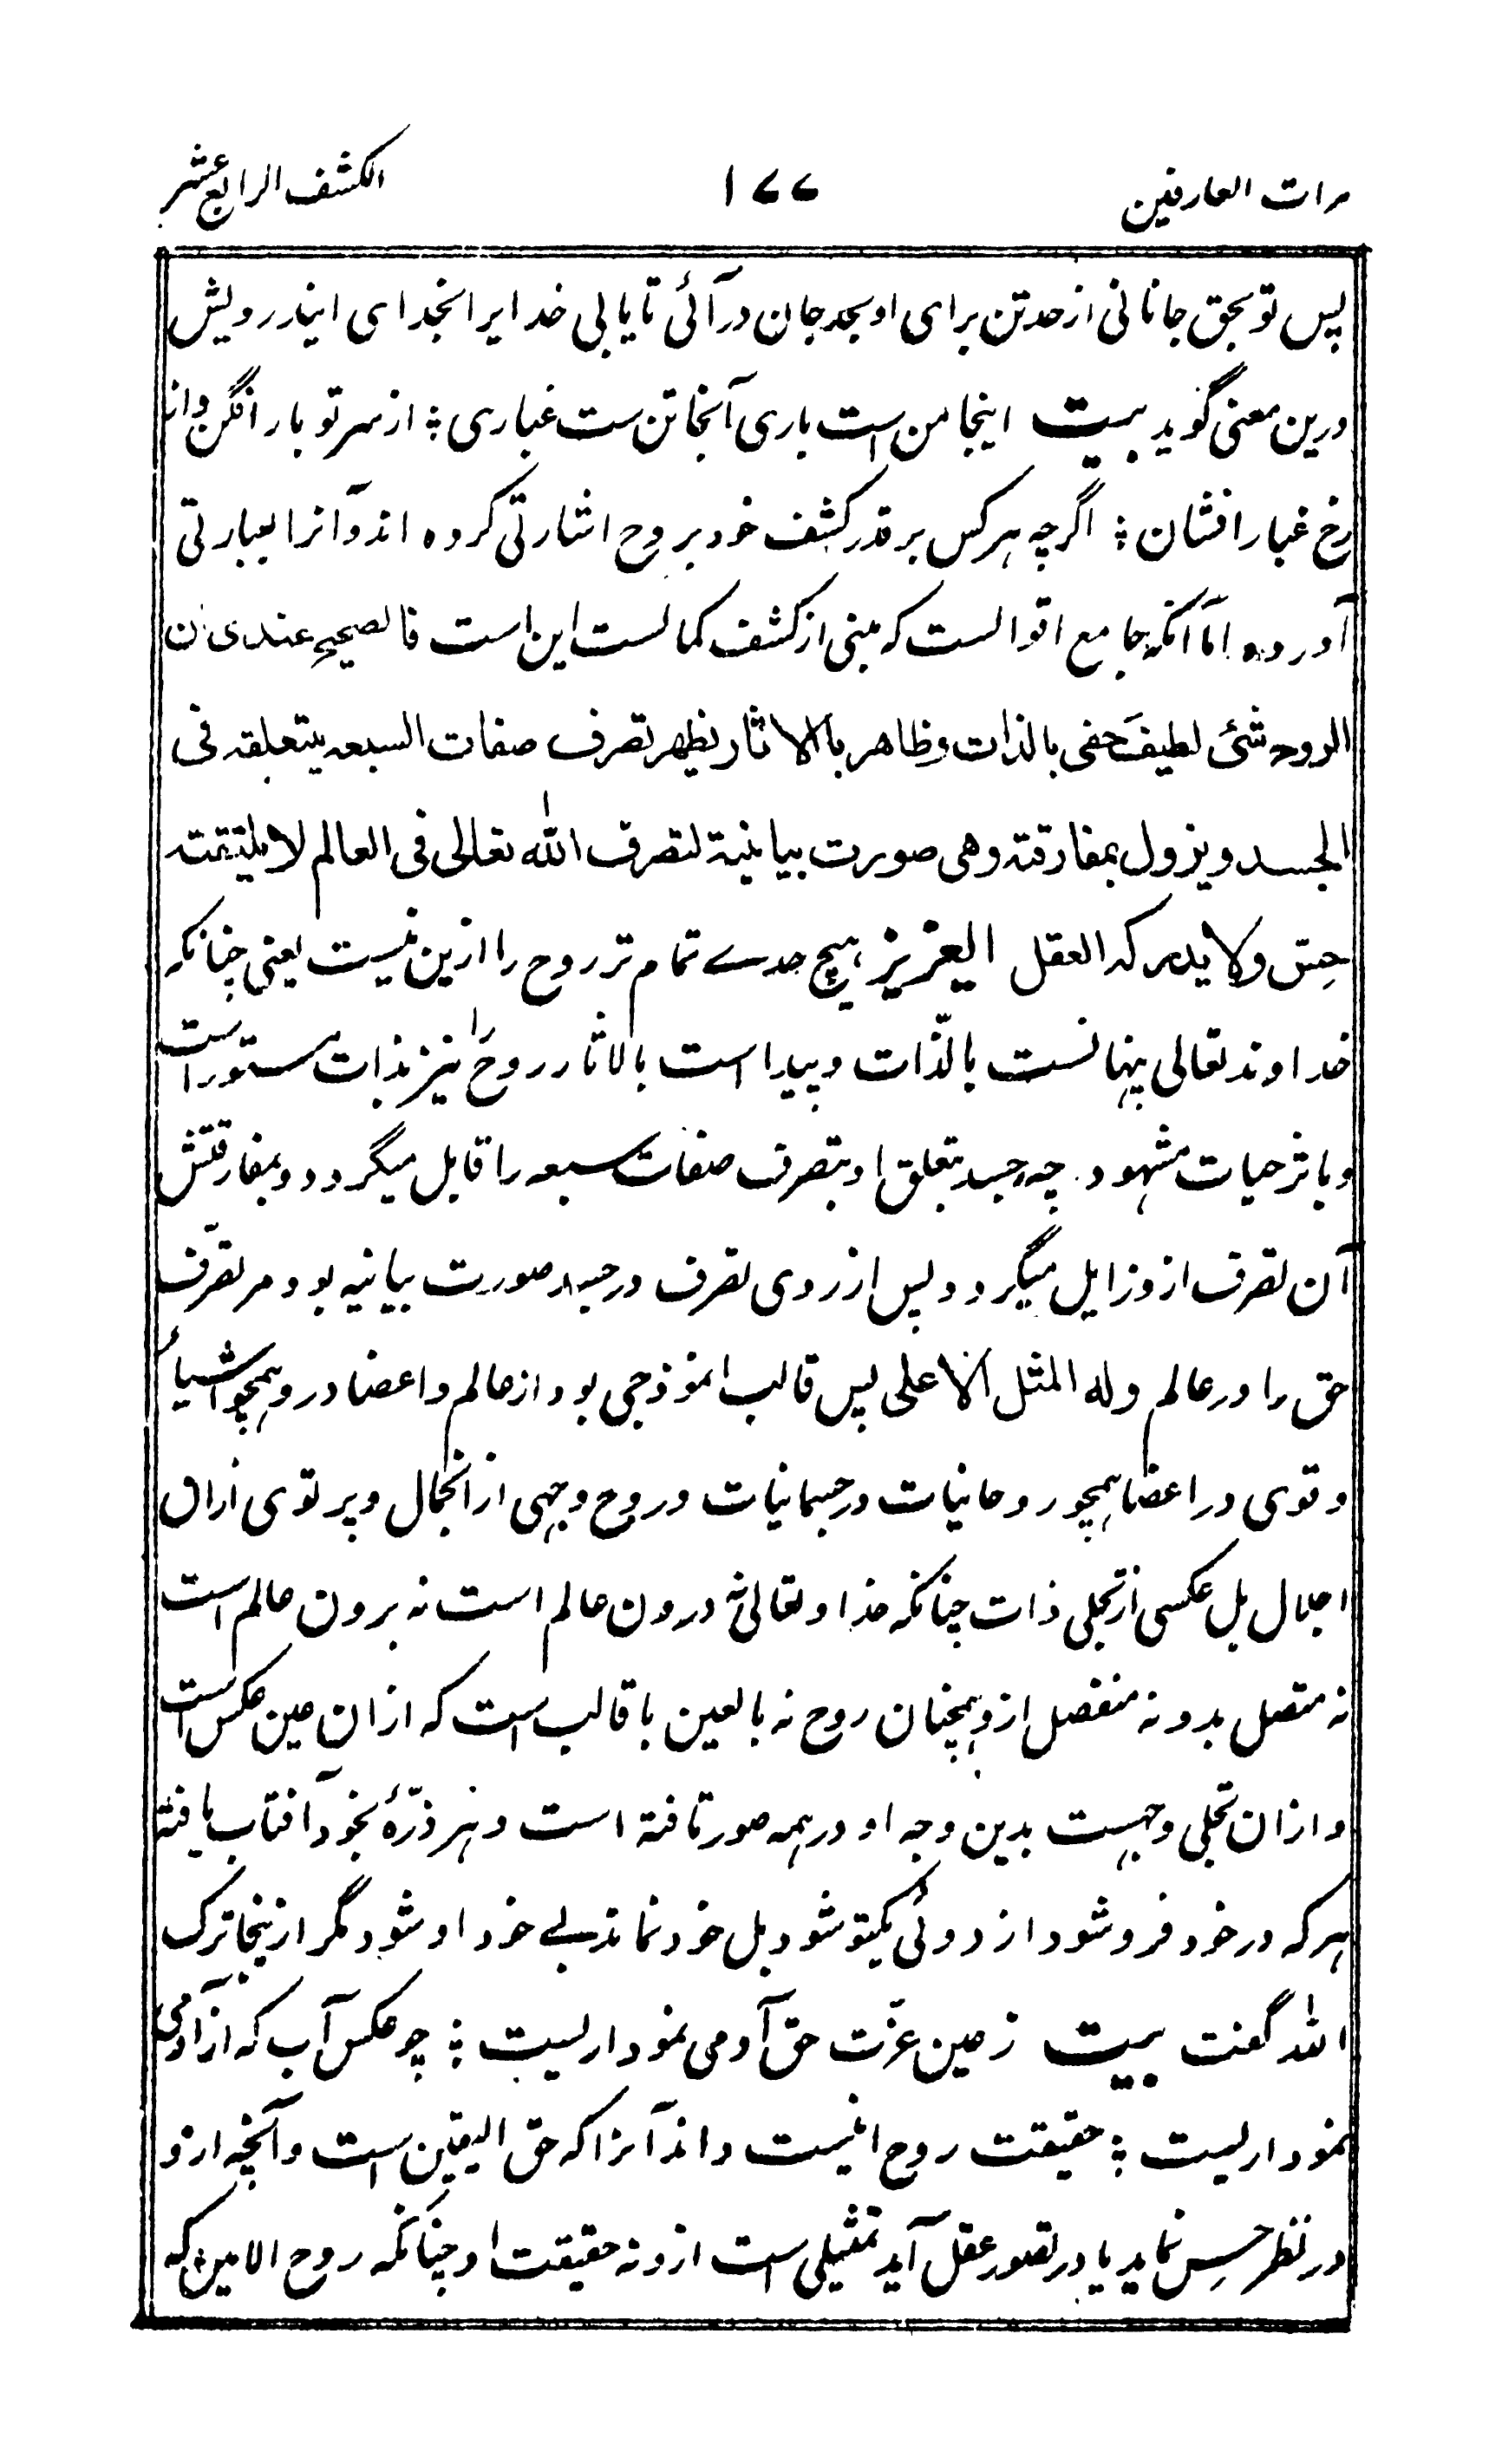 مرات العارفین ۱۷۷ الکشف الرابع عشر
پس تو بحق جانانی از حد تن برای او بحد جان در آئی تا یابی خدایرا بخدای ایندرویش
درین معنی گوید بیت اینجا من است باری آنجا تن ست غباری ؛ از سر تو بار افگن واز
رخ غبار افشان ؛ اگرچه هرکس بر قدر کشف خود بروح اشارتی کرده اند و آنرا بعبارتی
آورده اما آنکه جامع اقوالست که مبنی از کشف کمالست این است فالصحیح عندی ان
الروح شئ لطیف خفی بالذات وظاهر بالاثار یظهر تصرف صفات السبعه بتعلقه فی
الجسد ویزول بمفارقته وهی صورت بیانیة لتصرف الله تعالی فی العالم لا
حس ولا یدرکه العقل العزیز هیچ حدے تمام تر روح را ازین نیست یعنی چنانکه
خداوند تعالی پنهانست بالذات و پیدا است بالاثار روح را نیز بذات مستور است
و باثر حیات مشهود چه جسد بتعلق او بتصرف صفات سبعه را قابل میگردد و بمفارقتش
آن تصرف ازو زایل میگردد پس از روی تصرف در جسد صورت بیانیه بود مر تصرف
حق را در عالم وله المثل الاعلی پس قالب انموذجی بود از عالم و اعضا درو همچو اشیاء
و قوی در اعضا همچو روحانیات در جسمانیات و روح وجهی از انجمال و پرتوی ازان
اجلال بل عکسی از تجلی ذات چنانکه خداوتعالی نه درون عالم است نه برون عالم است
نه متصل بدو نه منفصل ازو همچنان روح نه بالعین با قالب است که ازان عین عکس است
و ازان تجلی وجهیست بدین وجه او در همه صور تافته است و هر ذرّهٔ بخود آفتاب یافته
هر که در خود فرو شود از دوئی یکتو شود بل خود نماند بے خود او شود مگر ازینجا ترک
الله گفت بیت ز عین عزّت حق آدمی نمودار لیست ؛ چو عکس آب که از آدمی
نمودار لیست ؛ حقیقت روح اینست داند آنرا که حق الیقین است و آنچه ازو
در نظر حس نماید یا در تصور عقل آید تمثیلی است ازو نه حقیقت او چنانکه روح الامین که